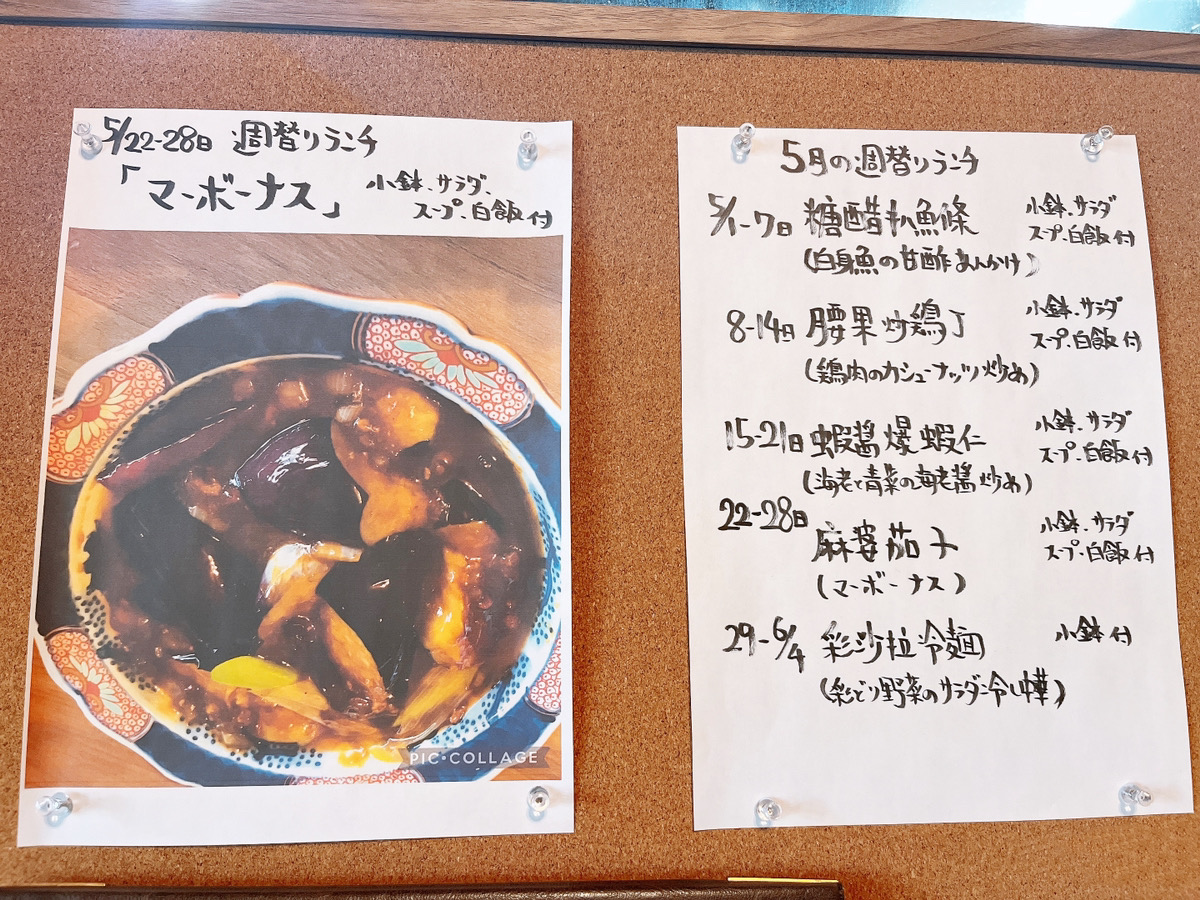 5/22-28日 週替りランチ
「マーボーナス」 小鉢、サラダ、
スープ、白飯付
PIC•COLLAGE
5月の週替りランチ
5/1-7日 糖醋扒魚條 小鉢、サラダ
スープ、白飯付
(白身魚の甘酢あんかけ)
8-14日 腰果炒鶏丁 小鉢、サラダ
スープ、白飯付
(鶏肉のカシューナッツ炒め)
15-21日 蝦醤爆蝦仁 小鉢、サラダ
スープ、白飯付
(海老と青菜の海老醤炒め)
22-28日 麻婆茄子 小鉢、サラダ
スープ、白飯付
(マーボーナス)
29-6/4 彩沙拉冷麺 小鉢付
(彩どり野菜のサラダ冷し中華)